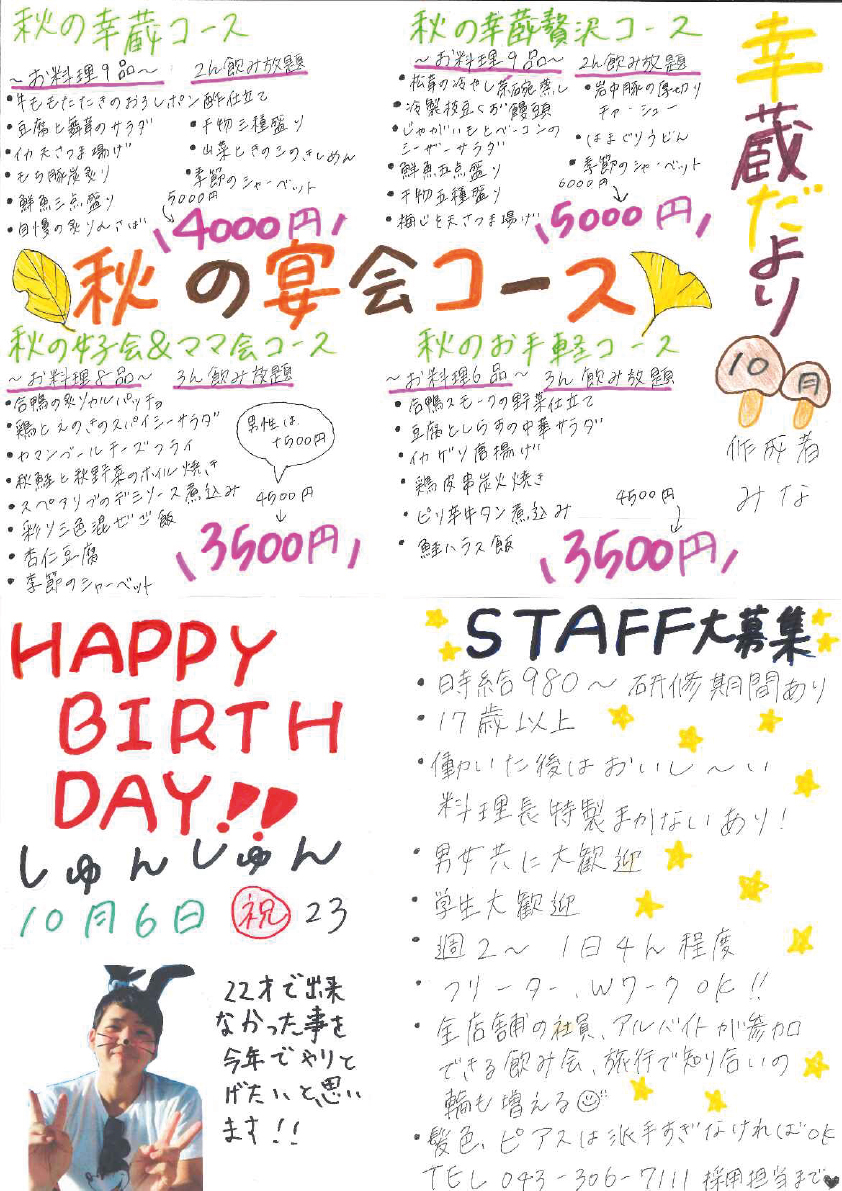 幸蔵だより
10月
作成者
みな
秋の幸蔵コース
～お料理9品～ 2h飲み放題
・牛もものたたきのおろしポン酢仕立て
・豆腐と舞茸のサラダ
・イカ天さつま揚げ
・もち豚炭炙り
・鮮魚三点盛り
・自慢の炙りんさば
・干物三種盛り
・山菜ときのこのきしめん
・季節のシャーベット
5000円
4000円
秋の幸蔵贅沢コース
～お料理9品～ 2h飲み放題
・松茸の冷やし茶碗蒸し
・冷製枝豆くず饅頭
・じゃがいもとベーコンの
シーザーサラダ
・鮮魚五点盛り
・干物五種盛り
・梅じそ天さつま揚げ
・岩中豚の厚切り
チャーシュー
・はまぐりうどん
・季節のシャーベット
6000円
5000円
秋の宴会コース
秋の女子会&ママ会コース
～お料理8品～ 3h飲み放題
・合鴨の炙りカルパッチョ
・鶏とえのきのスパイシーサラダ
・カマンベールチーズフライ
・秋鮭と秋野菜のホイル焼き
・スペアリブのデミソース煮込み
・彩り三色混ぜご飯
・杏仁豆腐
・季節のシャーベット
男性は
+500円
4500円
3500円
秋のお手軽コース
～お料理6品～ 3h飲み放題
・合鴨スモークの野菜仕立て
・豆腐としらすの中華サラダ
・イカゲソ唐揚げ
・鶏皮串炭火焼き
・ピリ辛牛タン煮込み
・鮭ハラス飯
4500円
3500円
HAPPY
BIRTH
DAY!!
しゅんしゅん
10月6日 祝 23
22才で出来
なかった事を
今年でやりと
げたいと思い
ます!!
STAFF大募集
・時給980～研修期間あり
・17歳以上
・働いた後はおいし～い
料理長特製まかないあり!
・男女共に大歓迎
・学生大歓迎
・週2～ 1日4h程度
・フリーター、WワークOK!!
・全店舗の社員、アルバイトが参加
できる飲み会、旅行で知り合いの
輪も増える
・髪色、ピアスは派手すぎなければOK
TEL 043-306-7111 採用担当まで♥